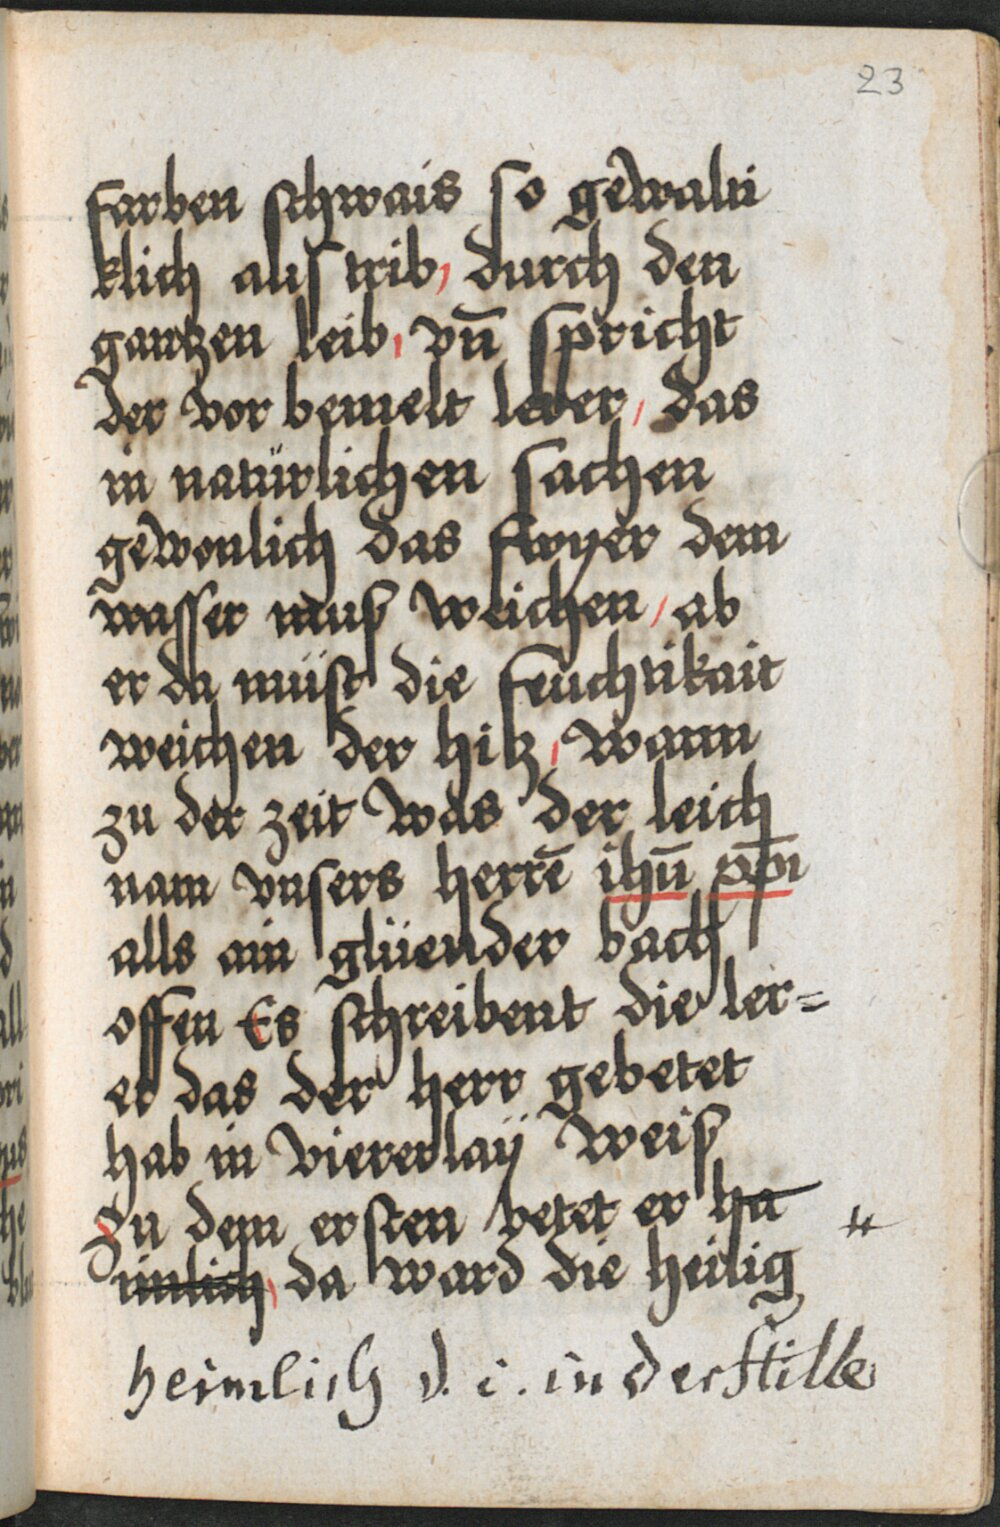 23
farben schwais so gewalti
klich aus trib, durch den
gantzen leib, vn̄ spricht
der vor bemelt lerer, das
in natürlichen sachen
gewonlich das fewyer dem
wasser muß weichen, ab
er da müst die feuchtikait
weichen der hitz, wann
zu der zeit was der leich
nam vnsers herrē ihū xp̄i
alls ain glüender bach
offen Es schreibent die ler=
er das der herr gebetet
hab in viererlaÿ weiß
Zu dem ersten betet er ha
imlich, da ward die heilig
heimlich d. i. in der Stille